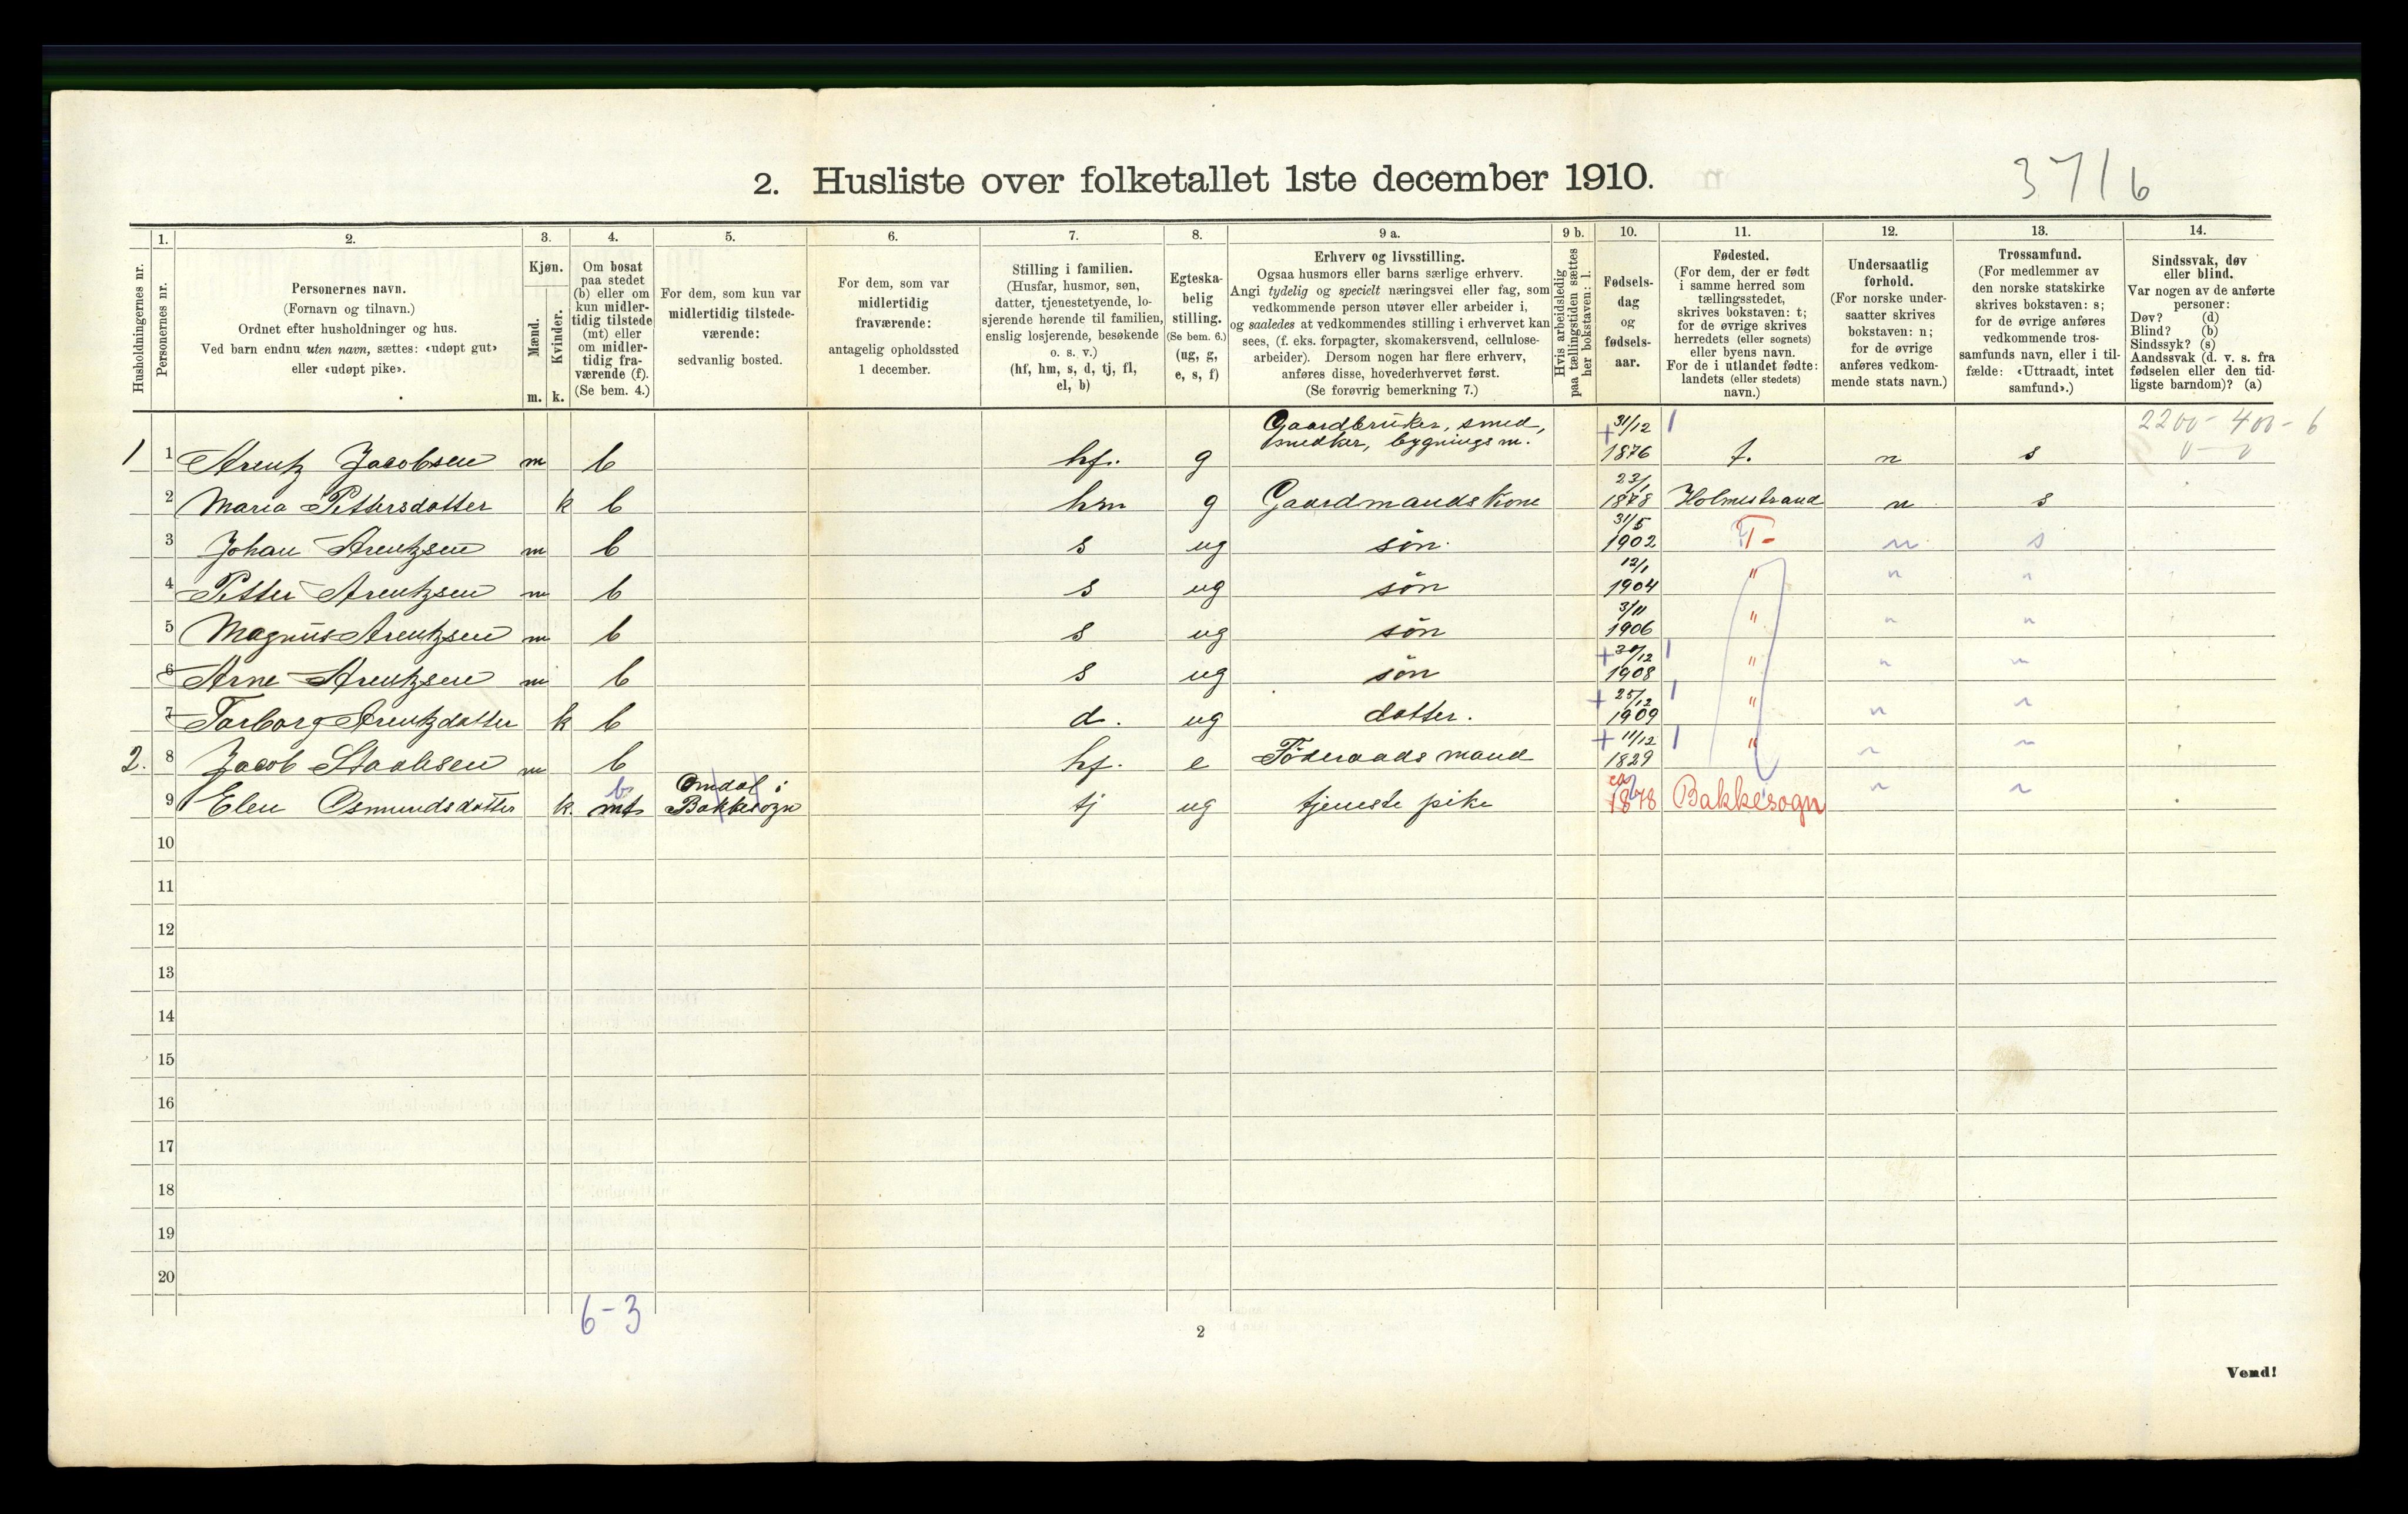 37/6
2. Husliste over folketallet 1ste december 1910.
Husholdningernes nr.
1.
Personernes nr.
2.
Personernes navn.
(Fornavn og tilnavn.)
Ordnet efter husholdninger og hus.
Ved barn endnu uten navn, sættes: «udøpt gut»
eller «udøpt pike».
3.
Kjøn.
Mænd.
Kvinder.
m. k.
4.
Om bosat
paa stedet
(b) eller om
kun midler-
tidig tilstede
(mt) eller
om midler-
tidig fra-
værende (f).
(Se bem. 4.)
5.
For dem, som kun var
midlertidig tilstede-
værende:
sedvanlig bosted.
6.
For dem, som var
midlertidig
fraværende:
antagelig opholdssted
1 december.
7.
Stilling i familien.
(Husfar, husmor, søn,
datter, tjenestetyende, lo-
sjerende hørende til familien,
enslig losjerende, besøkende
o. s. v.)
(hf, hm, s, d, tj, fl,
el, b)
8.
Egteska-
belig
stilling.
(Se bem. 6.)
(ug, g,
e, s, f)
9 a.
Erhverv og livsstilling.
Ogsaa husmors eller barns særlige erhverv.
Angi tydelig og specielt næringsvei eller fag, som
vedkommende person utøver eller arbeider i,
og saaledes at vedkommendes stilling i erhvervet kan
sees, (f. eks. forpagter, skomakersvend, cellulose-
arbeider). Dersom nogen har flere erhverv,
anføres disse, hovederhvervet først.
(Se forøvrig bemerkning 7.)
9 b.
Hvis arbeidsledig
paa tællingstiden sættes
her bokstaven: l.
10.
Fødsels-
dag
og
fødsels-
aar.
11.
Fødested.
(For dem, der er født
i samme herred som
tællingsstedet,
skrives bokstaven: t;
for de øvrige skrives
herredets (eller sognets)
eller byens navn.
For de i utlandet fødte:
landets (eller stedets)
navn.)
12.
Undersaatlig
forhold.
(For norske under-
saatter skrives
bokstaven: n;
for de øvrige
anføres vedkom-
mende stats navn.)
13.
Trossamfund.
(For medlemmer av
den norske statskirke
skrives bokstaven: s;
for de øvrige anføres
vedkommende tros-
samfunds navn, eller i til-
fælde: «Uttraadt, intet
samfund».)
14.
Sindssvak, døv
eller blind.
Var nogen av de anførte
personer:
Døv? (d)
Blind? (b)
Sindssyk? (s)
Aandssvak (d. v. s. fra
fødselen eller den tid-
ligste barndom)? (a)
2200 - 400 - 6
1 1 Arentz Jacobsen m b hf. g Gaardbruker, smed, snedker, bygningsm. + 31/12 1876 t. n s
2 Maria Pettersdotter k b hm g Gaardmandskone 23/1 1878 Holmestrand n s
3 Johan Arentzsen m b s ug sön 31/5 1902 T- n s
4 Petter Arentzsen m b s ug sön 12/1 1904 " n n
5 Magnus Arentzsen m b s ug sön 3/11 1906 " n n
6 Arne Arentzsen m b s ug sön + 30/12 1908 " n n
7 Torborg Arentzdotter k b d. ug dotter. + 25/12 1909 " n n
2. 8 Jacob Staalesen m b hf. e Föderaads mand + 11/12 1829 " n n
9 Elen Osmundsdotter k. mt b Omdal i Bakkesogn tj ug tjeneste pike ca 1878 Bakkesogn n n
10
11
12
13
14
15
16
17
18
19
20
6-3
2
Vend!